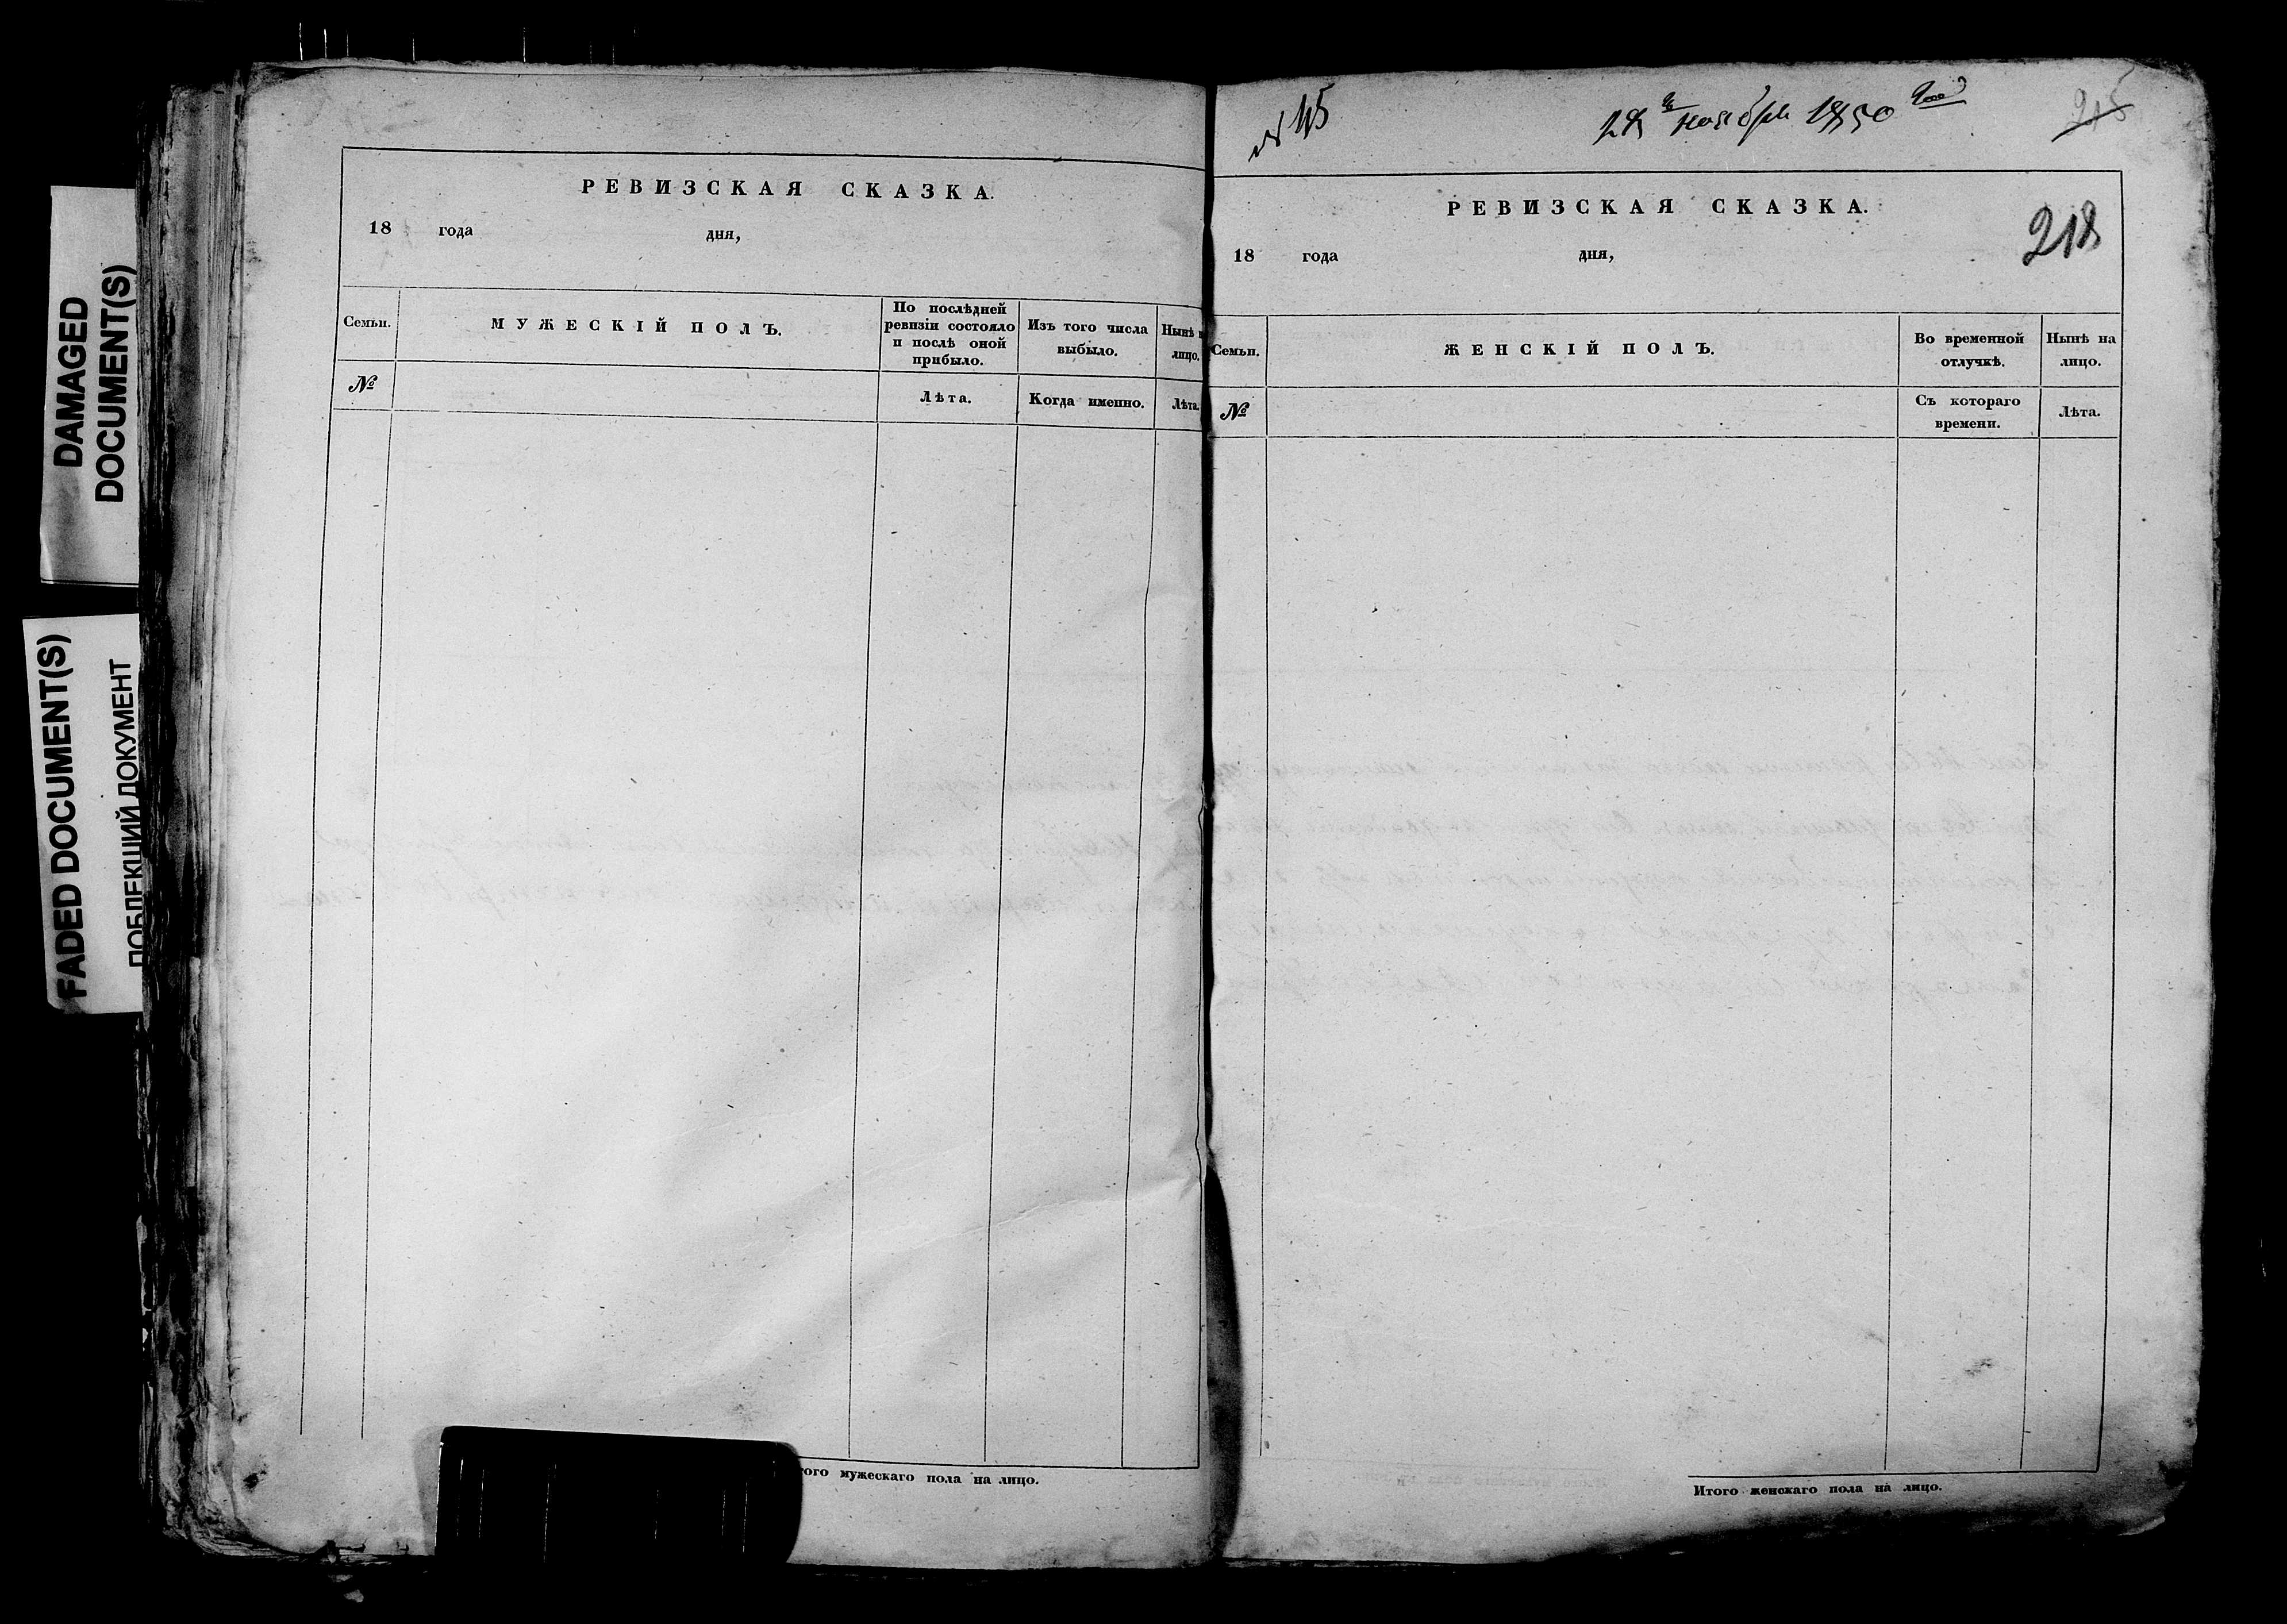 DAMAGED
DOCUMENT(S)
FADED DOCUMENT(S)
ПОБЛЕКШИЙ ДОКУМЕНТ
РЕВИЗСКАЯ СКАЗКА.
18 года дня,
Семьи.
МУЖЕСКІЙ ПОЛЪ.
По послѣдней
ревизіи состояло
и послѣ оной
прибыло.
Изъ того числа
выбыло.
Нынѣ
лицо.
№
Лѣта.
Когда именно.
Лѣта.
того мужескаго пола на лицо.
№ 45
28 ноября 1850
215
РЕВИЗСКАЯ СКАЗКА.
218
18 года дня,
Семьи.
ЖЕНСКІЙ ПОЛЪ.
Во временной
отлучкѣ.
Нынѣ на
лицо.
№
Съ котораго
времени.
Лѣта.
Итого женскаго пола на лицо.